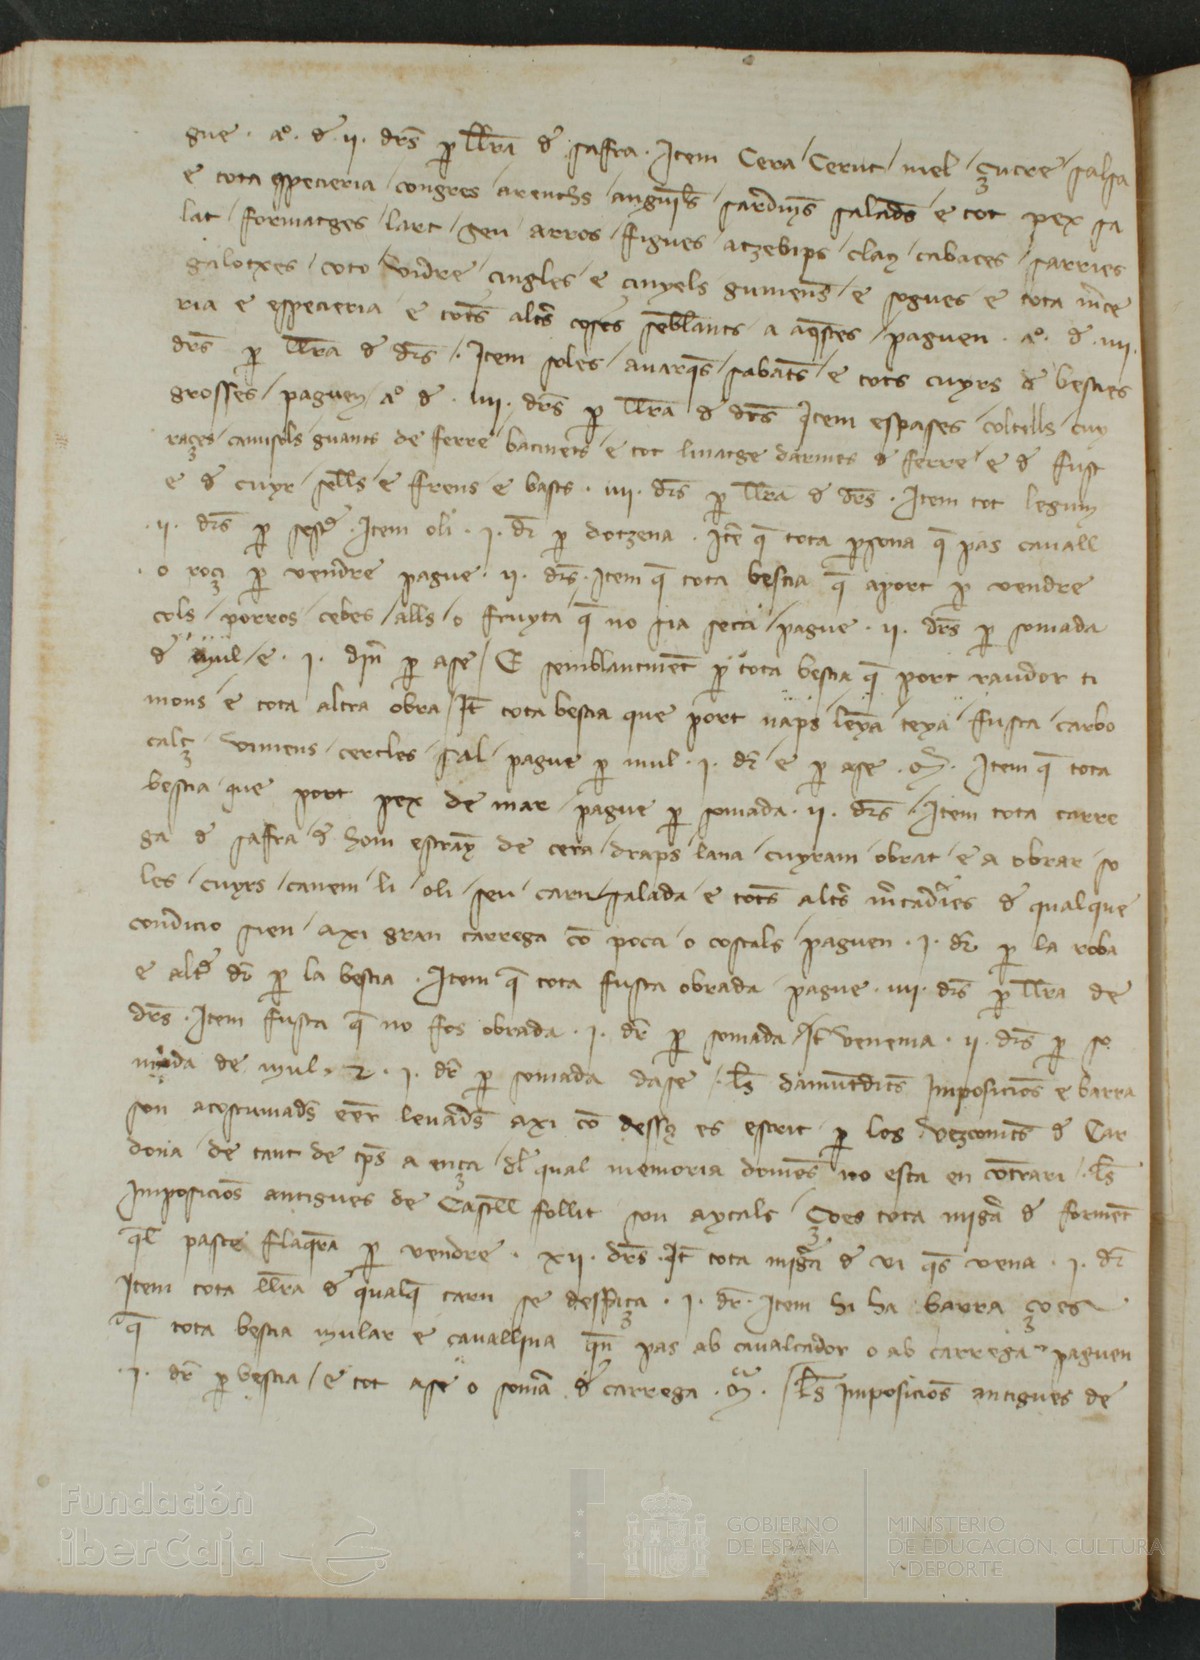 gue · aº · đ · ii · drs̄ p̱ llr̄a đ safra · Item Cera / Cerut / mel / çucre / salsa
e tota especieria / congres / arenchs / anguil̄s / sardiny̅s salad̄s / e tot pex sa
lat / formatges / lart / seu / arros / figues / atzebips / claȳ / cabaces / sarries
galotxes / coto / vidre / cingles / e cinyels gumen̄s / e sogues / e tota m̄ce
ria e especieria e tot̄s altr̄s coses sēblants a aq̄stes / paguen · aº · đ · iiii ·
drs̄ p̱ llr̄a đ drs̄ · Item soles / auarq̄s / sabat̄s / e tots cuyrs đ besties
grosses / paguen / aº đ · iiii · drs̄ p̱ llr̄a đ drs̄ Item espases / coltells / cuy
raçes / camisols / guants de ferre / bacinets / e tot linatge darmes đ ferre / e đ fust
e đ cuyr / sell̄s / e frens / e basts · iiii · drs̄ p̱ llr̄a đ drs̄ · Item tot legum
· ii · drs̄ p̱ sest̄ · Item oli · i · dr̄ p̱ dotzena · Itē q̄ tota p̱sona q̄ pas cauall
· o roçi p̱ vendre pague · ii · drs̄ · Item q̄ tota bestia q̄ aport p̱ vendre
cols / porros / cebes / alls / o fruyta q̄ no sia seca / pague · ii · drs̄ p̱ somada
đ mul / e · i · din̄ p̱ ase / E semblantmēt p̱ tota bestia q̄ port raudor ti
mons e tota altra obra / It̄ tota bestia que port naps leya teya fusta carbo
calç / vimens / cercles / sal / pague p̱ mul · i · dr̄ e p̱ ase · mª · Item q̄ tota
bestia que port pex de mar / pague p̱ somada · ii · drs̄ · Item tota carre
ga đ safra / đ hom estrany̅ de cera / draps / lana / cuyram obrat / e a obrar / so
les / cuyrs / canem / li / oli / seu / carn salada / e tot̄s altr̄s m̄cad̄ies đ qualque
condicio sien / axi gran carrega cō poca / o costals / paguen · i · dr̄ p̱ la roba
e alt̄ dr̄ p̱ la bestia · Item q̄ tota fusta obrada / pague · iiii · drs̄ p̱ llr̄a de
drs̄ · Item fusta q̄ no fos obrada · i · dr̄ p̱ somada / It̄ venema · ii · drs̄ p̱ so
mada de mul · ⁊ · i · dr̄ p̱ somada dase / l̄s damūtdit̄s Imposicion̄s e barra
son acostumad̄s eēr leuad̄s axi cō dessꝰ es escrit p̱ los vezcomt̄s đ Car
dona / de tant de tp̄s a ença / dl̄ qual memoria domen̄s no esta en cōtrari · l̄s
Imposicion̄s antigues de Castell follit son aytals / ço es tota miga đ formēt
q̄l paste flaq̄ra p̱ vendre · xii · drs̄ · It̄ tota miga đ vi q̄s vena · i · dr̄
Item tota llr̄a đ qualq̄ carn se despēça · i · dr̄ · Item hi ha barra ço es
q̄ tota bestia mular e cauallina q̄n pas ab caualcador o ab carrega paguen
· i · dr̄ p̱ bestia / e tot ase o somā đ carrega · mª · / l̄s Imposicion̄s antigues de
Fundación
iberCaja
GOBIERNO
DE ESPAÑA
MINISTERIO
DE EDUCACIÓN, CULTURA
Y DEPORTE